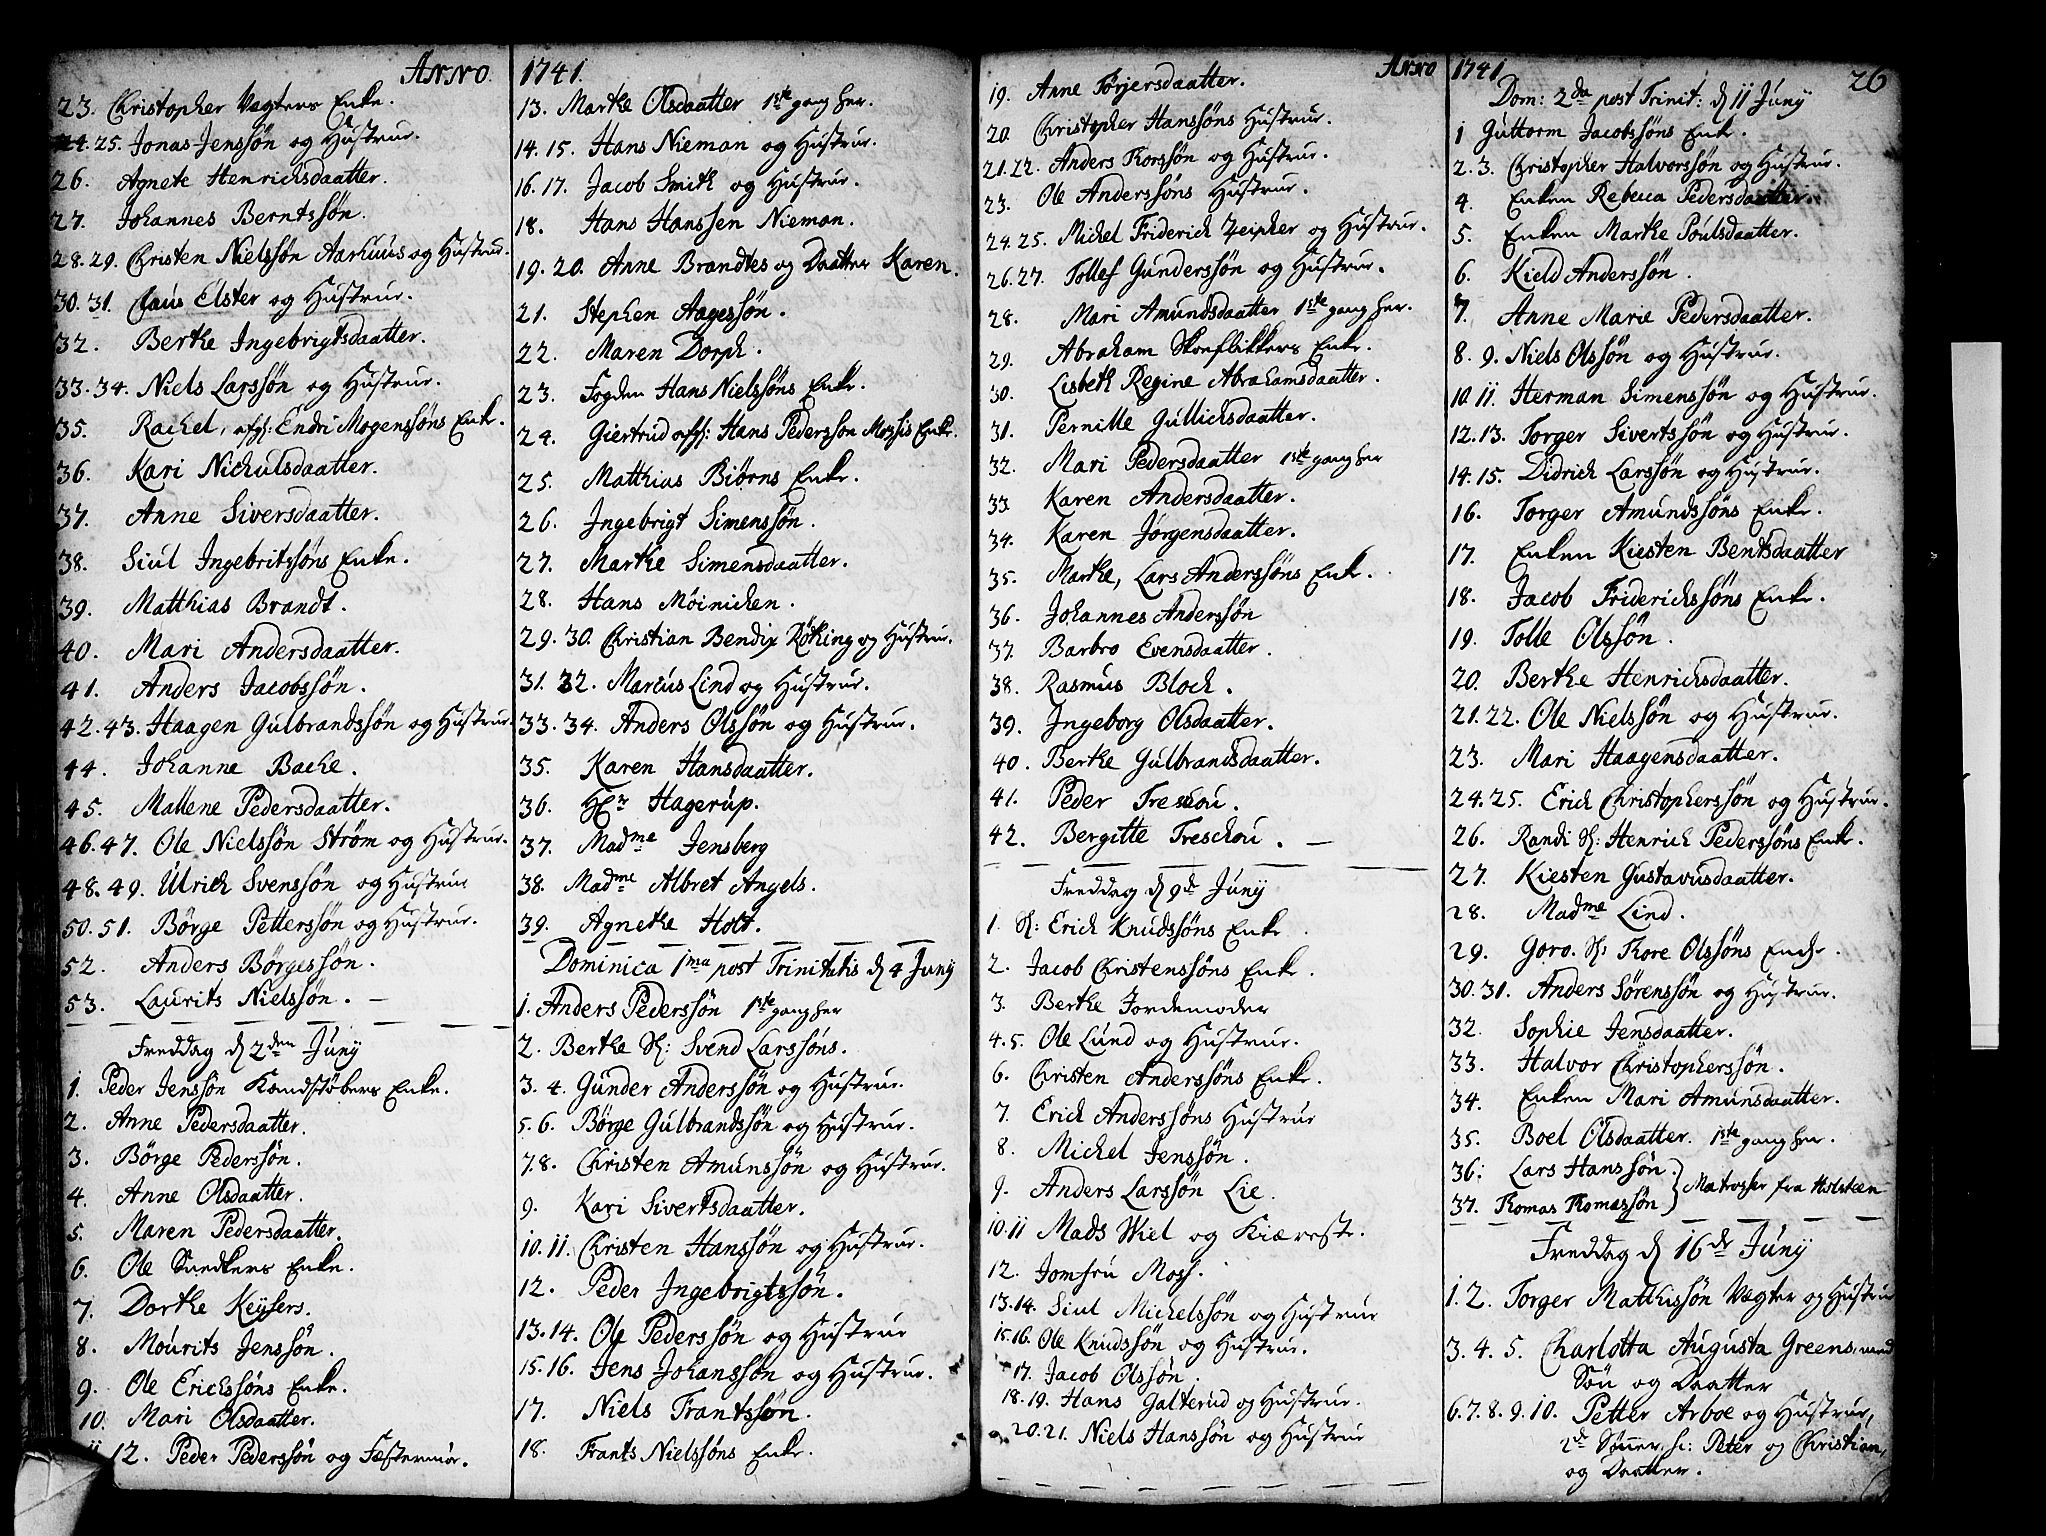 Anno 1741.
23. Christopher Vegters Enke.
24. 25. Jonas Jenssøn og Hustrur.
26. Agnete Henrichsdaatter.
27. Johannes Berntssøn.
28. 29. Christen Nielssøn Aarhuus og Hustrur.
30. 31. Claus Elster og Hustrur.
32. Berthe Ingebrigtsdaatter.
33. 34. Niels Larssøn og Hustrur.
35. Rachel, afg: Endri Mogenssøns Enke.
36. Kari Nichulsdaatter.
37. Anne Siversdaatter.
38. Siul Ingebritssøns Enke.
39. Matthias Brandt.
40. Mari Andersdaatter.
41. Anders Jacobssøn.
42. 43. Haagen Gulbrandssøn og Hustrur.
44. Johanne Bache.
45. Mallene Pedersdaatter.
46. 47. Ole Nielssøn Strøm og Hustrur.
48. 49. Ulrich Svenssøn og Hustrur
50. 51. Børge Petterssøn og Hustrur.
52. Anders Børgessøn.
53. Laurits Nielssøn. —
Freddag d 2den Juny
1. Peder Jenssøn Kandstøbers Enke.
2. Anne Pedersdaatter.
3. Børge Pederssøn.
4. Anne Olsdaatter.
5. Maren Pedersdaatter.
6. Ole Snedkers Enke.
7. Dorthe Keysers.
8. Mourits Jenssøn.
9. Ole Erichssøns Enke.
10. Mari Olsdaatter.
11 12. Peder Pederssøn og Festermøe.
13. Marthe Olsdaatter 1ste gang her.
14. 15. Hans Nieman og Hustrur.
16. 17. Jacob Smith og Hustrur.
18. Hans Hanssen Nieman.
19. 20. Anne Brandtes og Daatter Karen.
21. Stephen Aagessøn.
22. Maren Dorph.
23. Fogden Hans Nielssøns Enke.
24. Giertrud afg: Hans Pederssøn Enke.
25. Matthias Biørns Enke.
26. Ingebrigt Simenssøn.
27. Marthe Simensdaatter.
28. Hans Møinichen.
29. 30. Christian Bendix Røking og Hustrur.
31. 32. Marcus Lind og Hustrur.
33. 34. Anders Olssøn og Hustrur.
35. Karen Hansdaatter.
36. Hr Hagerup.
37. Madme Jensberg
38. Madme Albret Angels.
39. Agnethe Holt.
Dominica 1ma post Trinitatis d 4 Juny
1. Anders Pederssøn 1ste gang her
2. Berthe Sl: Svend Larssøns.
3. 4. Gunder Anderssøn og Hustrur.
5. 6. Børge Gulbrandssøn og Hustrur.
7. 8. Christen Amunssøn og Hustrur.
9. Kari Sivertsdaatter.
10. 11. Christen Hanssøn og Hustrur.
12. Peder Ingebrigtssøn.
13. 14. Ole Pederssøn og Hustrur
15. 16. Jens Johanssøn og Hustrur.
17. Niels Frantssøn.
18. Frants Nielssøns Enke.
Anno 1741
26
19. Anne Tørjersdaatter.
20 Christopher Hanssøns Hustrur.
21. 22. Anders Thorssøn og Hustrur.
23. Ole Anderssøns Hustrur.
24. 25. Michel Friderich Zeipher og Hustrur.
26. 27. Tollef Gunderssøn og Hustrur.
28. Mari Amundsdaatter 1ste gang her.
29. Abraham Skoeflikkers Enke.
30. Lisbeth Regine Abrahamsdaatter.
31. Pernille Gullichsdaatter.
32. Mari Pedersdaatter 1ste gang her
33 Karen Andersdaatter.
34. Karen Jørgensdaatter.
35. Marthe, Lars Anderssøns Enke.
36. Johannes Anderssøn
37. Barbro Evensdaatter.
38. Rasmus Bloch.
39. Ingeborg Olsdaatter.
40. Berthe Gulbrandsdaatter.
41. Peder Treschou.
42. Bergitte Treschou. —
Freddag d 9de Juny
1. Sl: Erich Knudssøns Enke
2. Jacob Christenssøns Enke.
3. Berthe Jordemoder
4. 5. Ole Lund og Hustrur.
6. Christen Anderssøns Enke.
7. Erich Anderssøns Hustrur
8. Michel Jenssøn.
9. Anders Larssøn Lie.
10. 11 Mads Wiel og Kiæreste.
12. Jomfru
13. 14. Siul Michelssøn og Hustrur
15. 16. Ole Knudssøn og Hustrur.
17. Jacob Olssøn.
18. 19. Hans Jalterud og Hustrur.
20. 21. Niels Hanssøn og Hustrur
Dom: 2da post Trinit: d 11 Juny
1 Guttorm Jacobssøns Enke.
2. 3. Christopher Halvorssøn og Hustrur.
4. Enken Rebecca Pedersdaatter.
5. Enken Marthe Poulsdaatter.
6. Kield Anderssøn.
7. Anne Marie Pedersdaatter.
8. 9. Niels Olssøn og Hustrur.
10 11. Herman Simenssøn og Hustrur.
12. 13. Torger Sivertssøn og Hustrur.
14. 15. Didrich Larssøn og Hustrur.
16. Torger Amundssøns Enke.
17. Enken Kiesten Bentsdaatter
18. Jacob Friderichssøns Enke.
19. Tolle Olssøn.
20. Berthe Henrichsdaatter.
21. 22. Ole Nielssøn og Hustrur.
23. Mari Haagensdaatter.
24. 25. Erich Christopherssøn og Hustrur.
26. Randi Sl: Henrich Pederssøns Enke.
27. Kiesten Gustavusdaatter.
28. Madme Lind.
29. Goro. Sl: Thore Olssøns Enche.
30. 31. Anders Sørenssøn og Hustrur.
32. Sophie Jensdaatter.
33. Halvor Christopherssøn.
34. Enken Mari Amunsdaatter.
35. Boel Olsdaatter. 1ste gang her.
36: Lars Hanssøn.
37. Thomas Thomassøn } Matroser fra Holsteen
Freddag d 16de Juny
1. 2. Torger Mathissøn Vegter og Hustrur
3. 4. 5. Charlotta Augusta Greens, med
Søn og Daatter
6. 7. 8. 9. 10. Petter Arboe og Hustrur,
2de Sønner, sc: Peter og Christian,
og Daatter.